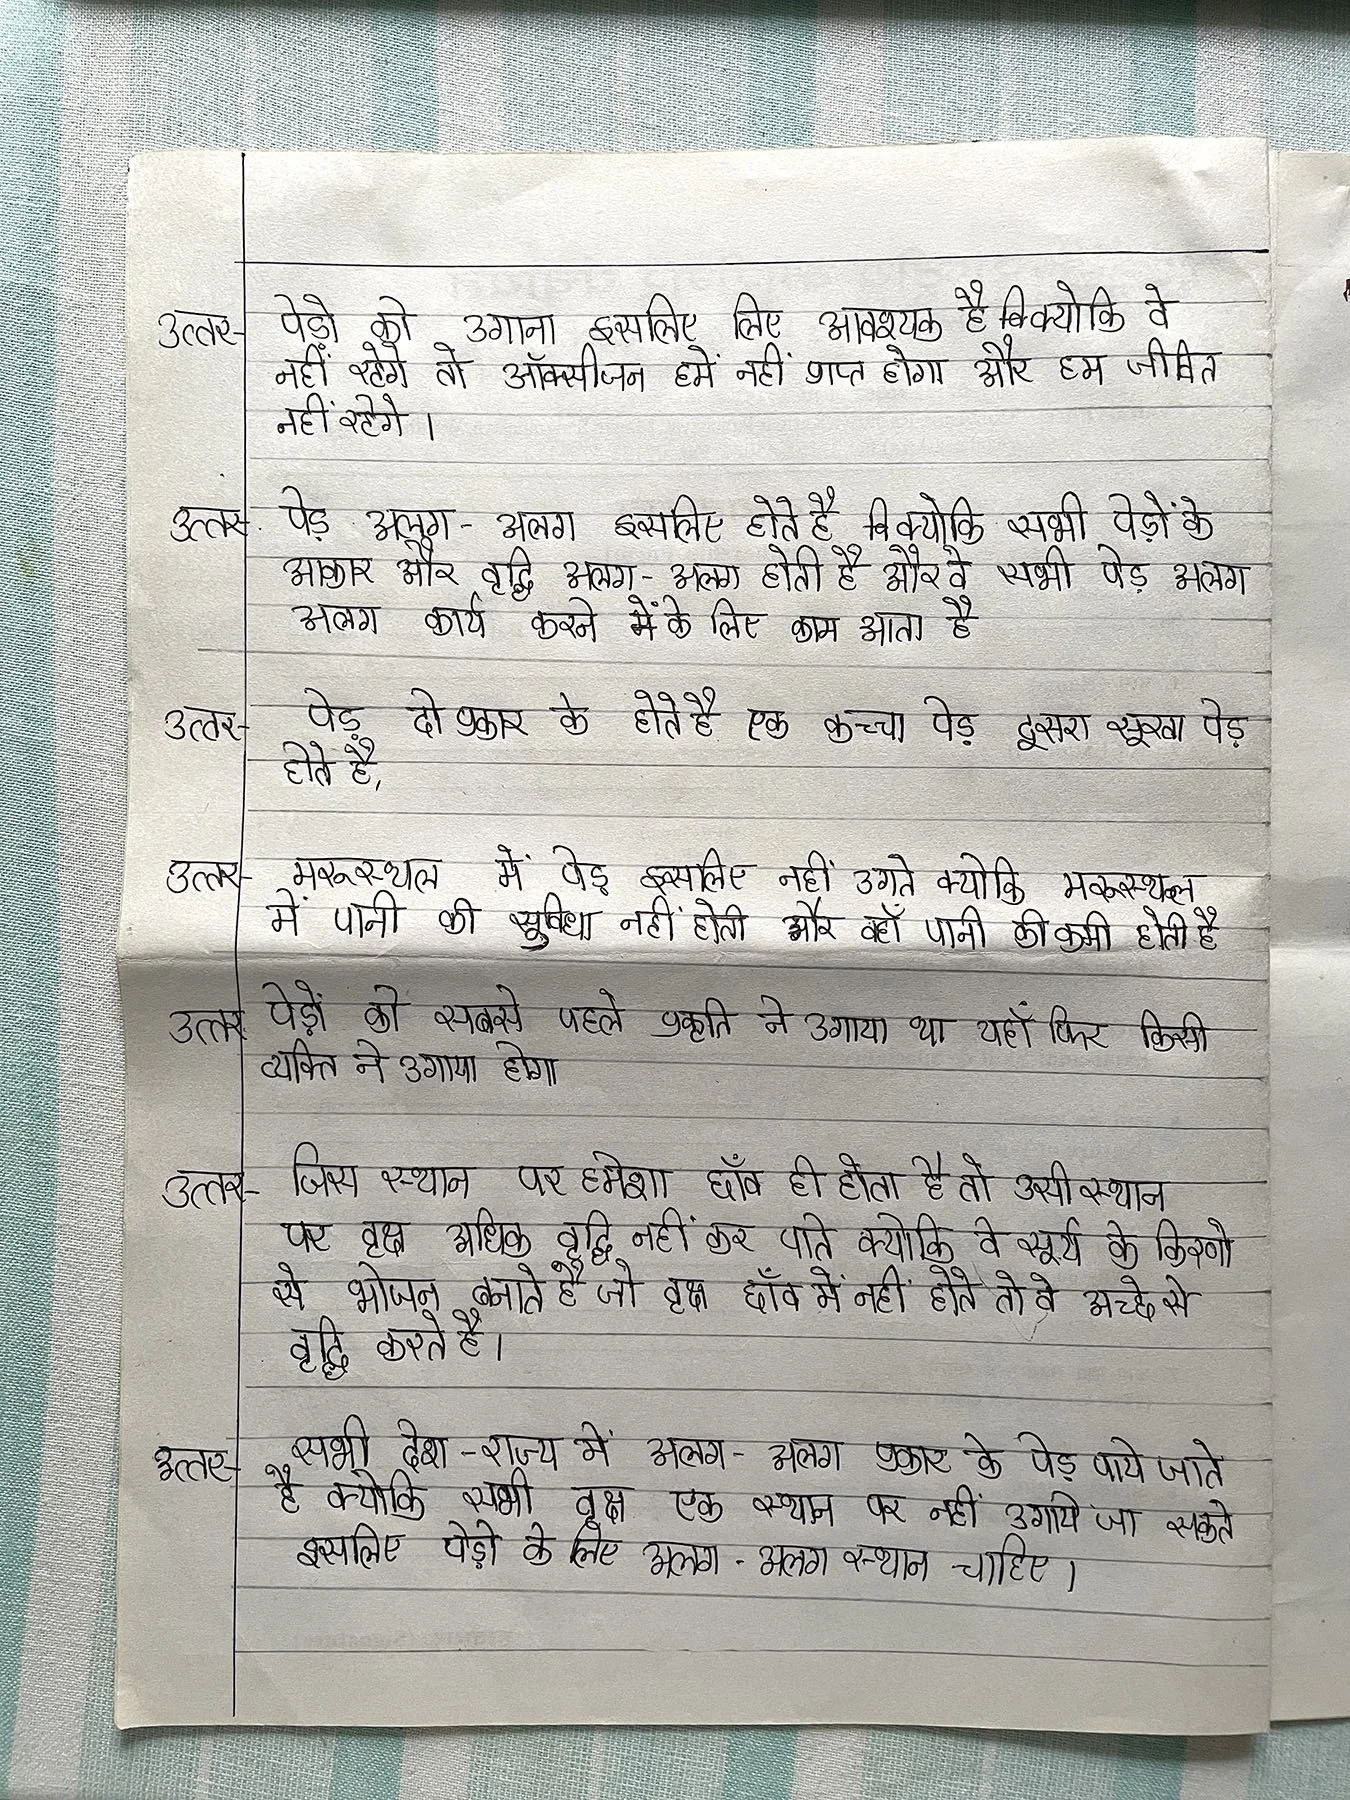 उत्तर- पेड़ो को उगाना इसलिए लिए आवश्यक है विक्योकि वे
नहीं रहेगे तो ऑक्सीजन हमें नहीं प्राप्त होगा और हम जीवित
नहीं रहेगे ।
उत्तर- पेड़ अलग - अलग इसलिए होते है विक्योकि सभी पेड़ों के
आकार और वृद्धि अलग - अलग होती है और वे सभी पेड़ अलग
अलग कार्य करने में के लिए काम आता है
उत्तर- पेड़ दो प्रकार के होते है एक कच्चा पेड़ दूसरा सूखा पेड़
होते है,
उत्तर- मरूस्थल में पेड़ इसलिए नहीं उगते क्योकि मरूस्थल
में पानी की सुविधा नहीं होती और वहाँ पानी की कमी होती है
उत्तर- पेड़ों को सबसे पहले प्रकृति ने उगाया था यहाँ फिर किसी
व्यक्ति ने उगाया होगा
उत्तर- जिस स्थान पर हमेशा छाँव ही होता है तो उसी स्थान
पर वृक्ष अधिक वृद्धि नहीं कर पाते क्योकि वे सूर्य के किरणो
से भोजन बनाते है जो वृक्ष छाँव में नहीं होते तो वे अच्छे से
वृद्धि करते है ।
उत्तर- सभी देश - राज्य में अलग - अलग प्रकार के पेड़ पाये जाते
है क्योकि सभी वृक्ष एक स्थान पर नहीं उगाये जा सकते
इसलिए पेड़ो के लिए अलग - अलग स्थान चाहिए ।